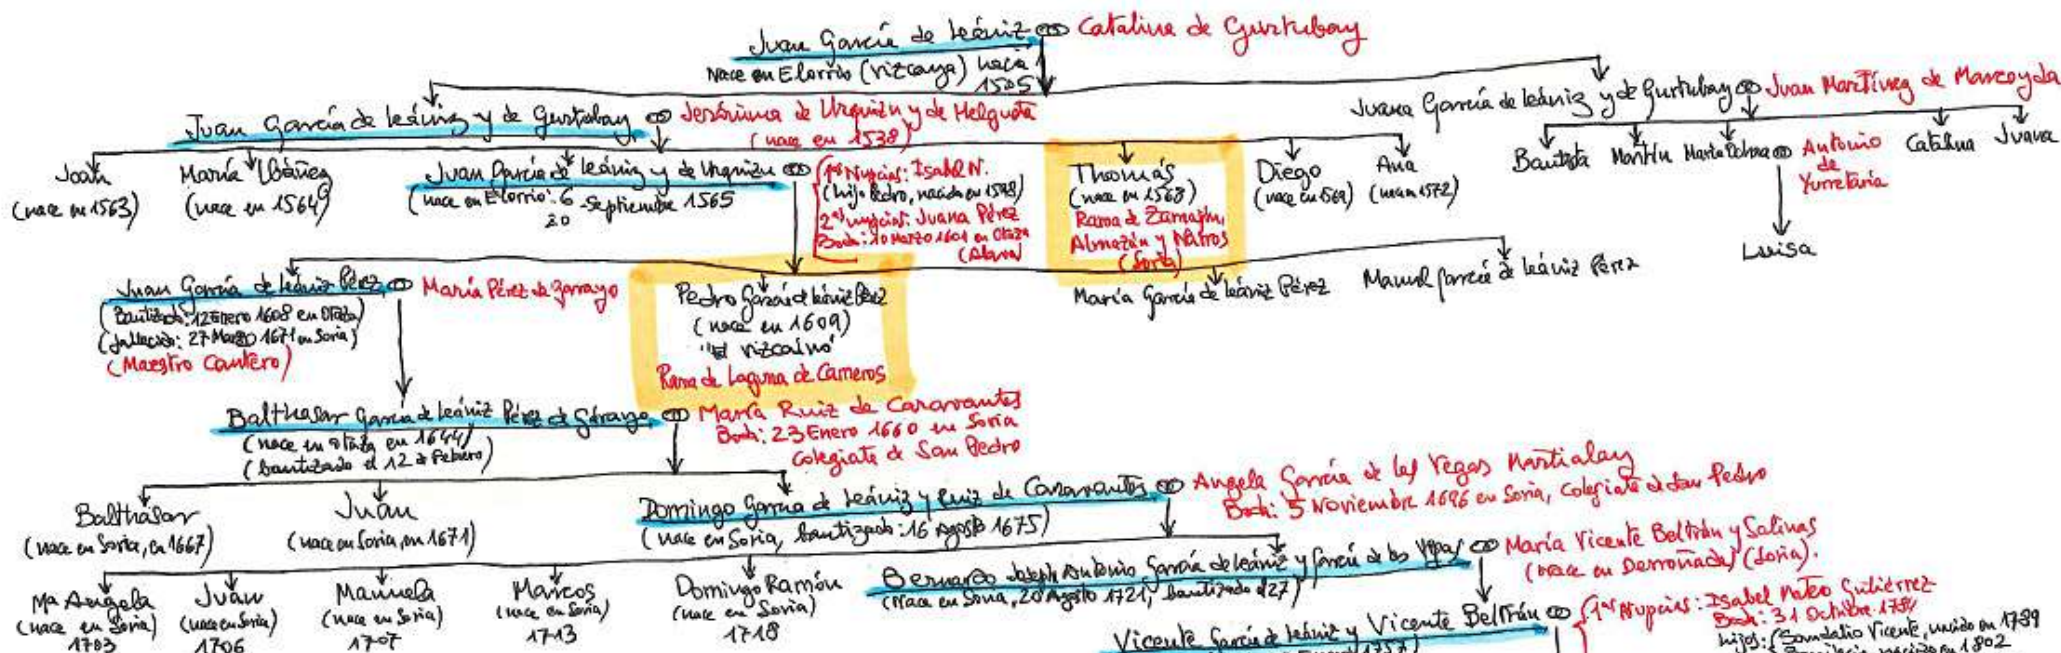 Juan García de Leániz ⚭ Catalina de Gurtubay
Nace en Elorrio (Vizcaya) hacia
1505
Juan García de Leániz y de Gurtubay ⚭ Jerónima de Urquizu y de Helgueta
(nace en 1538)
Juana García de Leániz y de Gurtubay ⚭ Juan Martínez de Marcoyda
Joan
(nace en 1563)
María Ibáñez
(nace en 1564)
Juan García de Leániz y de Urquizu ⚭
(nace en Elorrio: 6
20 Septiembre 1565
1as Nupcias: Isabel N.
(hijo Pedro, nacido en 1598)
2as nupcias: Juana Pérez
Boda: 10 Marzo 1601 en Otaza
(Alava)
Thomás
(nace en 1568)
Rama de
Almazán y
(Soria)
Diego
(nace en 1569)
Ana
(nace en 1572)
Bautista
Martín
María ⚭ Antonio
de
Yurretaria
Catalina
Juana
Luisa
Juan García de Leániz Pérez ⚭ María Pérez de Garayo
(Bautizado: 12 Enero 1608 en Otaza)
(fallecido: 27 Marzo 1671 en Soria)
(Maestro Cantero)
Pedro García de Leániz Pérez
(nace en 1609)
"el vizcaíno"
Rama de Laguna de Cameros
María García de Leániz Pérez
Manuel García de Leániz Pérez
Balthasar García de Leániz Pérez de Garayo ⚭ María Ruiz de Caravantes
(nace en Otaza en 1644)
(bautizado el 12 de Febrero)
Boda: 23 Enero 1660 en Soria
Colegiata de San Pedro
Balthásar
(nace en Soria, en 1667)
Juan
(nace en Soria, en 1671)
Domingo García de Leániz y Ruiz de Caravantes ⚭ Angela García de las Vegas Martialay
(nace en Soria, bautizado: 16 Agosto 1675)
Boda: 5 Noviembre 1696 en Soria, Colegiata de San Pedro
Mª Angela
(nace en Soria)
1703
Juan
(nace en Soria)
1706
Manuela
(nace en Soria)
1707
Marcos
(nace en Soria)
1713
Domingo Ramón
(nace en Soria)
1718
Bernardo Joseph Antonio García de Leániz y García de las Vegas ⚭ María Vicente Beltrán y Salinas
(Nace en Soria, 20 Agosto 1721, bautizado el 27)
(nace en Derroñadas) (Soria).
Vicente García de Leániz y Vicente Beltrán ⚭
Enero 1757)
1as Nupcias: Isabel Mateo Gutiérrez
Boda: 31 Octubre 1781
hijos: (Sandalio Vicente, nacido en 1789
nacido en 1802